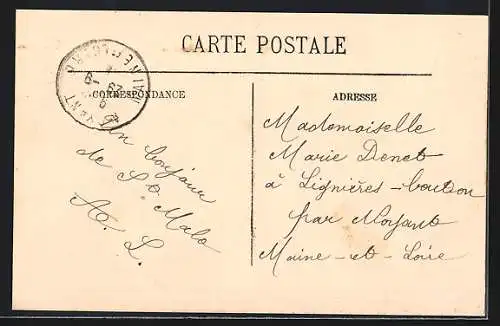 CARTE POSTALE
CORRESPONDANCE
ADRESSE
Un bonjour
de St Malo
A. L.
Mademoiselle
Marie Denet
à Lignières-bouton
par Noyant
Maine-et-Loire